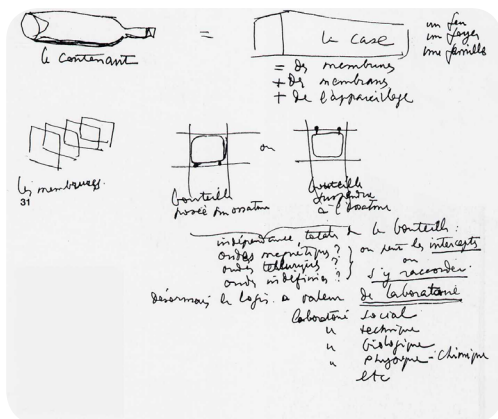 =
la case
un feu
un foyer
une famille
le contenant
= des membrures
+ des membrans
+ de l'appareillage
ou
les membrures
31
bouteille
posée sur ossature
bouteille
suspendue
à l'ossature
indépendance totale de la bouteille :
ondes magnétiques ?
ondes telluriques ?
ondes indéfinies ?
on peut les intercepter
ou
s'y raccorder
Désormais le logis a valeur de laboratoire
laboratoire social
" technique
" biologique
" physique-chimique
etc